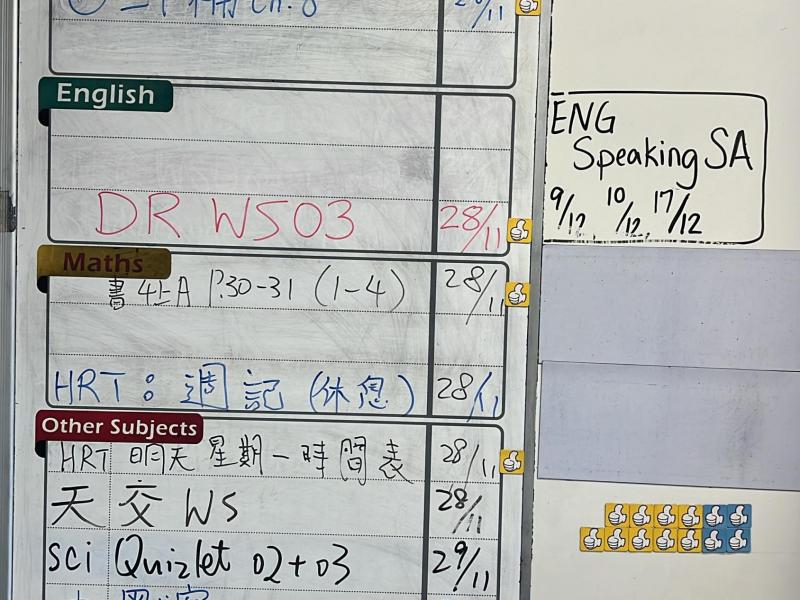 二下冊 Ch. 8
English
DR WS03 28/11
Maths
書4上A P.30-31 (1-4) 28/11
HRT: 週記 (休息) 28/11
Other Subjects
HRT 明天星期一時間表 28/11
天交 WS 28/11
sci Quizlet 02+03 29/11
ENG
Speaking SA
9/12, 10/12, 17/12